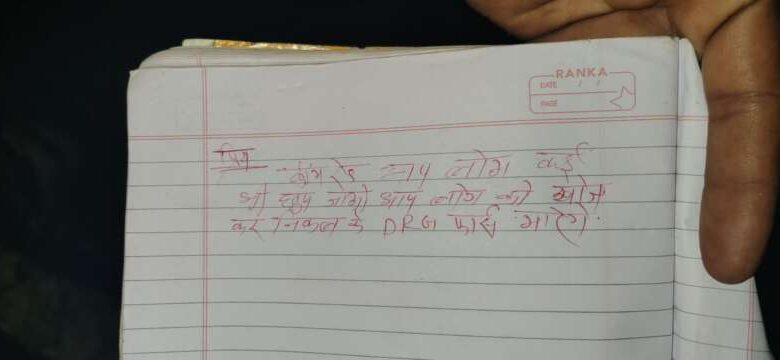 RANKA
DATE / /
PAGE
प्रिय
कामरेड आप लोग कई
भी छुप जाओ आप लोग को खोज
कर निकाल के DRG फोर्स मारेंगे.